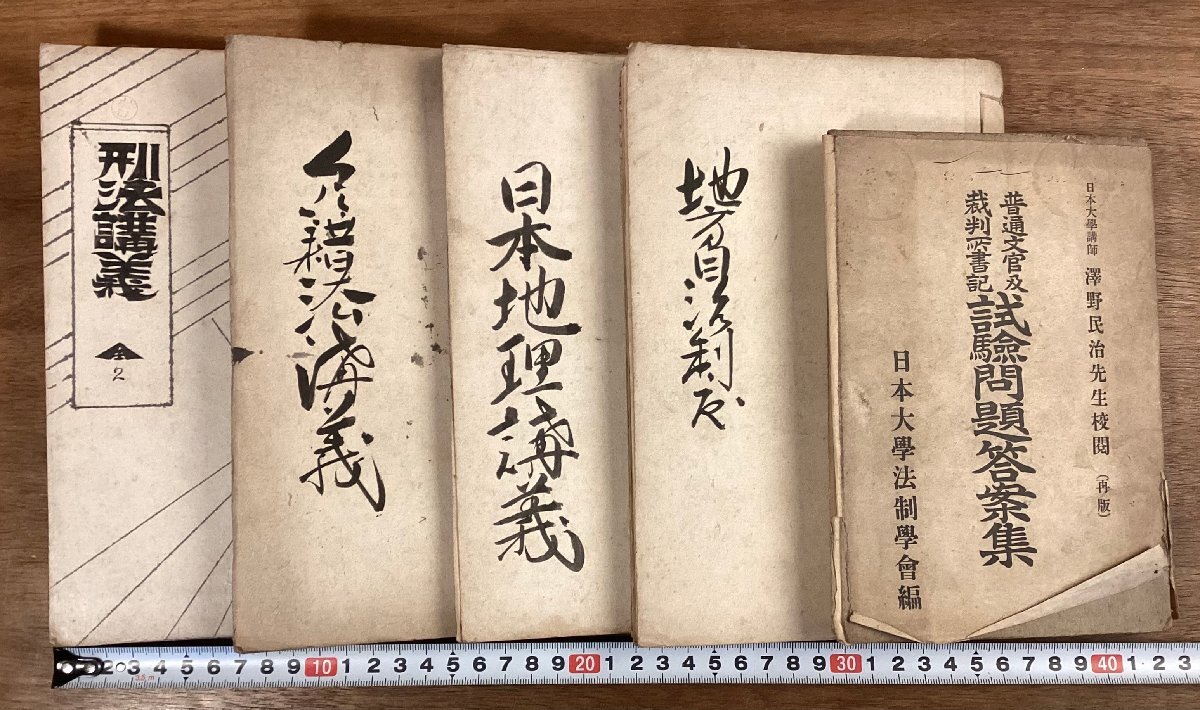 刑法講義
全
2
戸籍法講義
日本地理講義
地方自治制度
日本大學講師 澤野民治先生校閲 (再版)
普通文官及
裁判所書記
試驗問題答案集
日本大學法制學會編
1 2 3 4 5 6 7 8 9 10 1 2 3 4 5 6 7 8 9 20 1 2 3 4 5 6 7 8 9 30 1 2 3 4 5 6 7 8 9 40 1 2 3